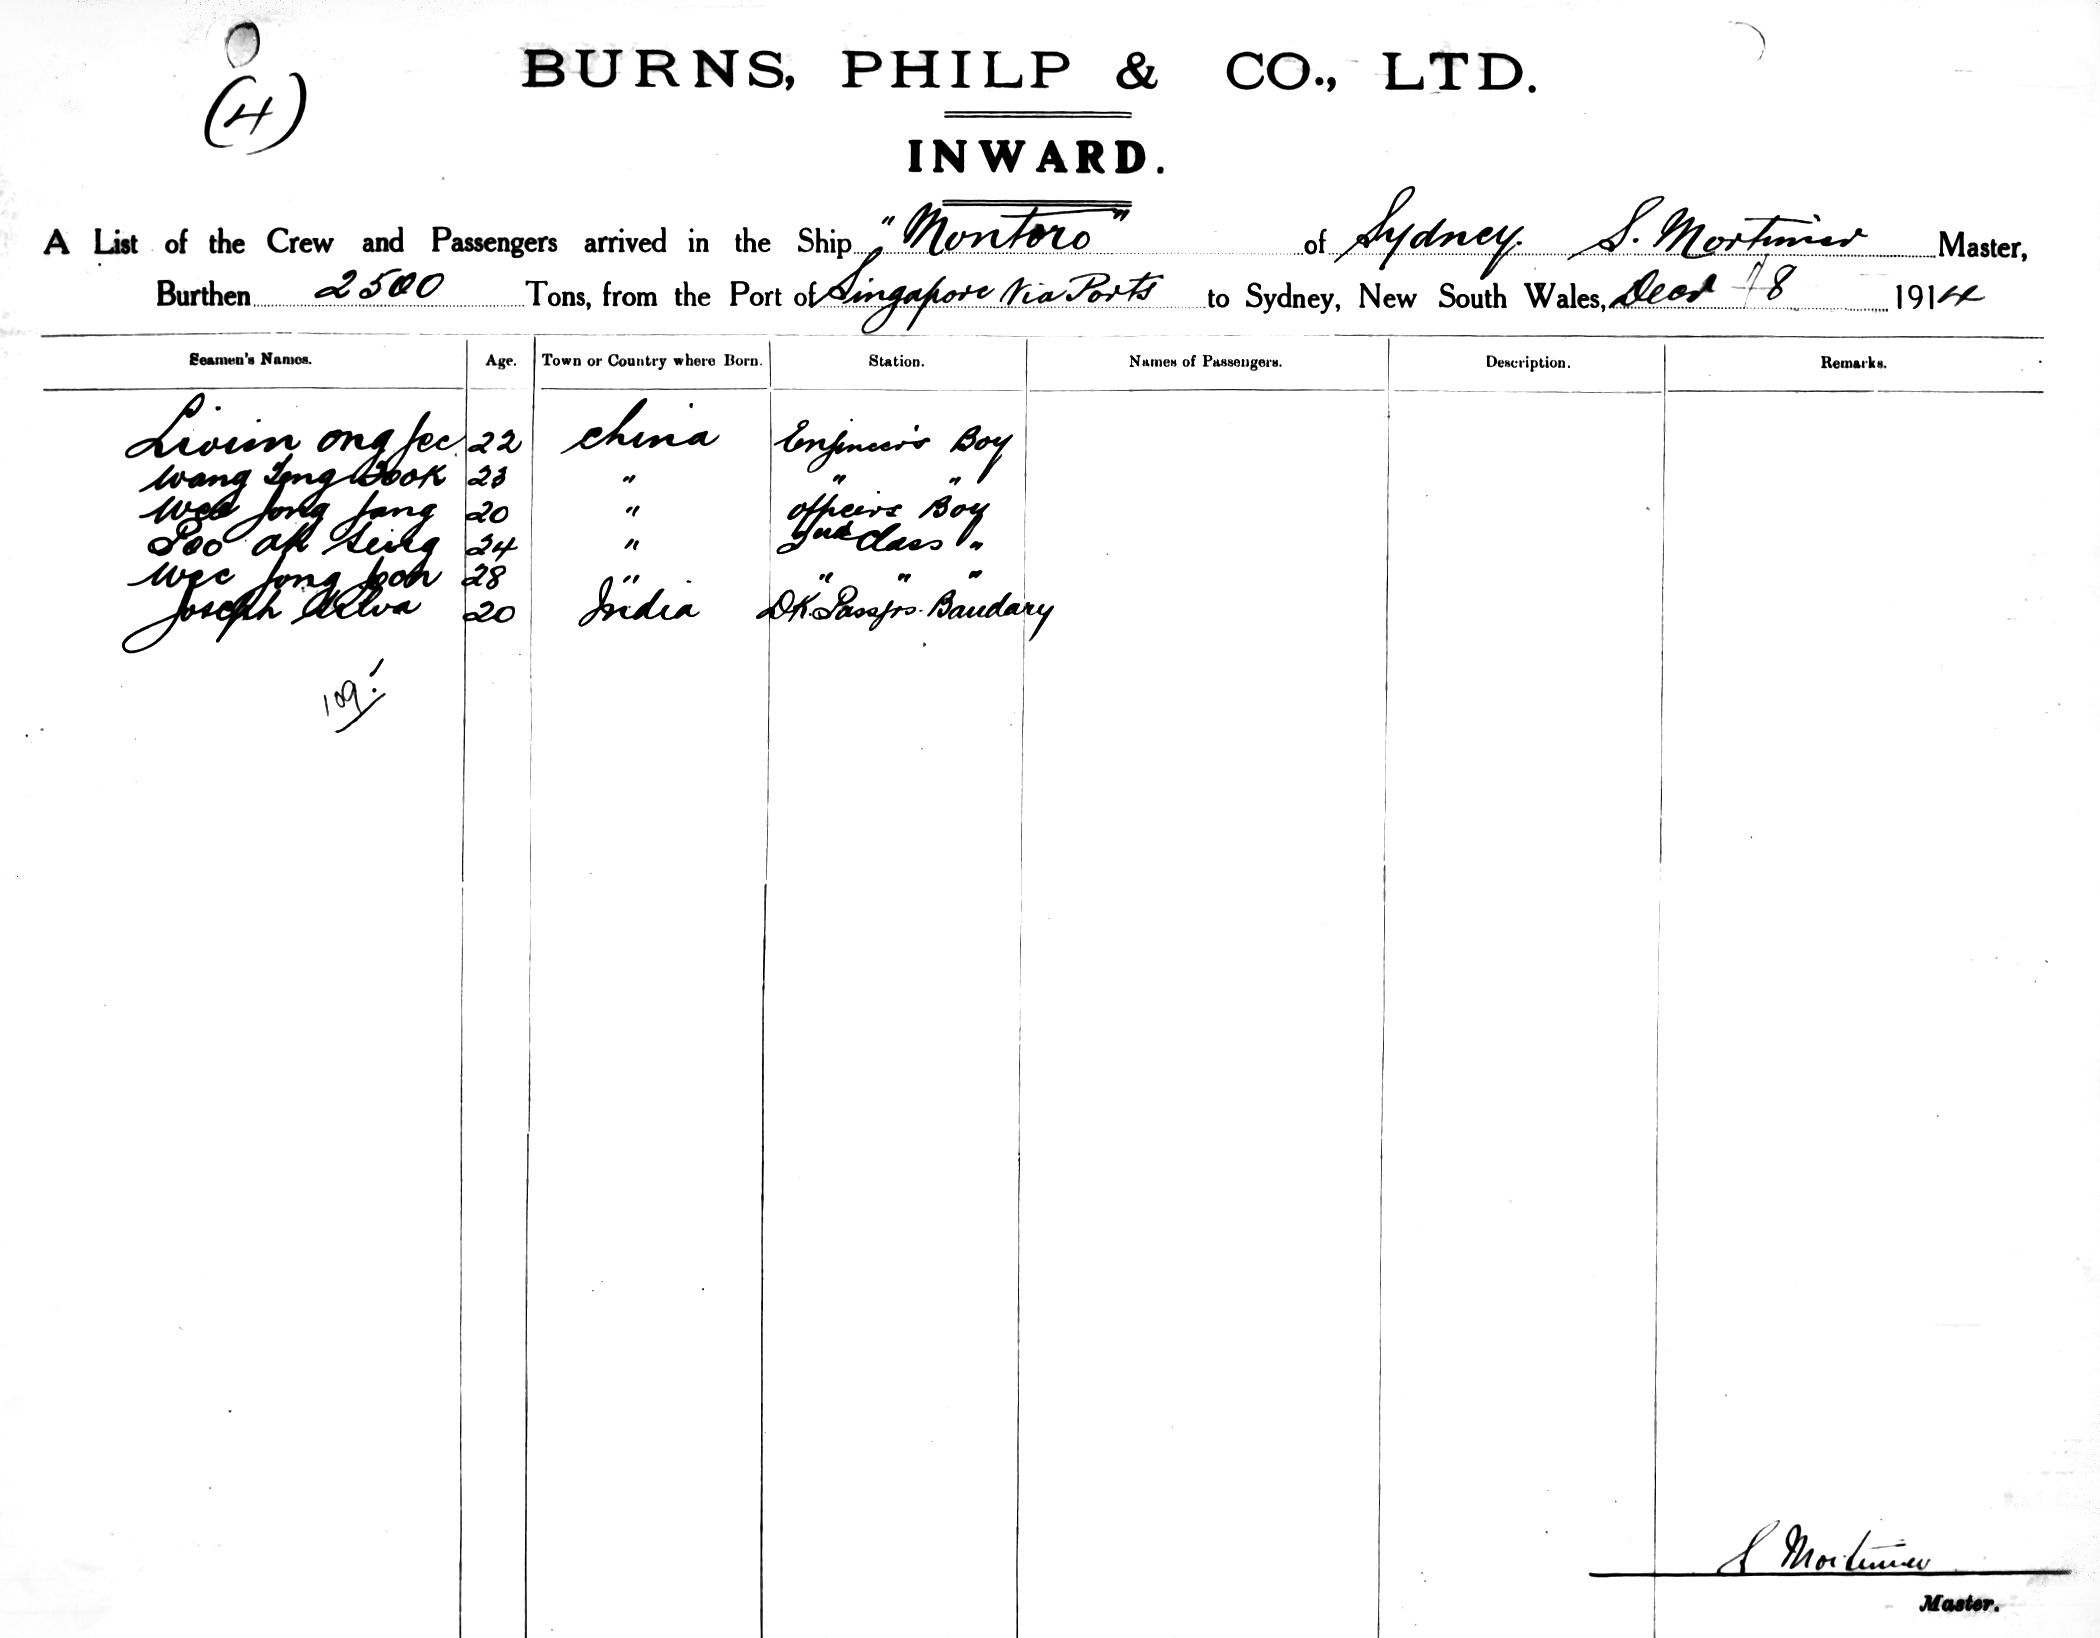 (4)
BURNS, PHILP & CO., LTD.
INWARD.
A List of the Crew and Passengers arrived in the Ship "Montoro" of Sydney. S. Mortimer Master,
Burthen 2500 Tons, from the Port of Singapore Via Ports to Sydney, New South Wales, Decr 18 1914
Seamen's Names. Age. Town or Country where Born. Station. Names of Passengers. Description. Remarks.
ong 22 China Engineer's Boy
Wang 23 " " "
Wee Jong 20 " officers Boy
Poo ah Seing 24 " 2nd Class "
Wee Jong 28 " " " "
Joseph 20 India DK. Passgrs. Bandary
109!
S Mortimer
Master.